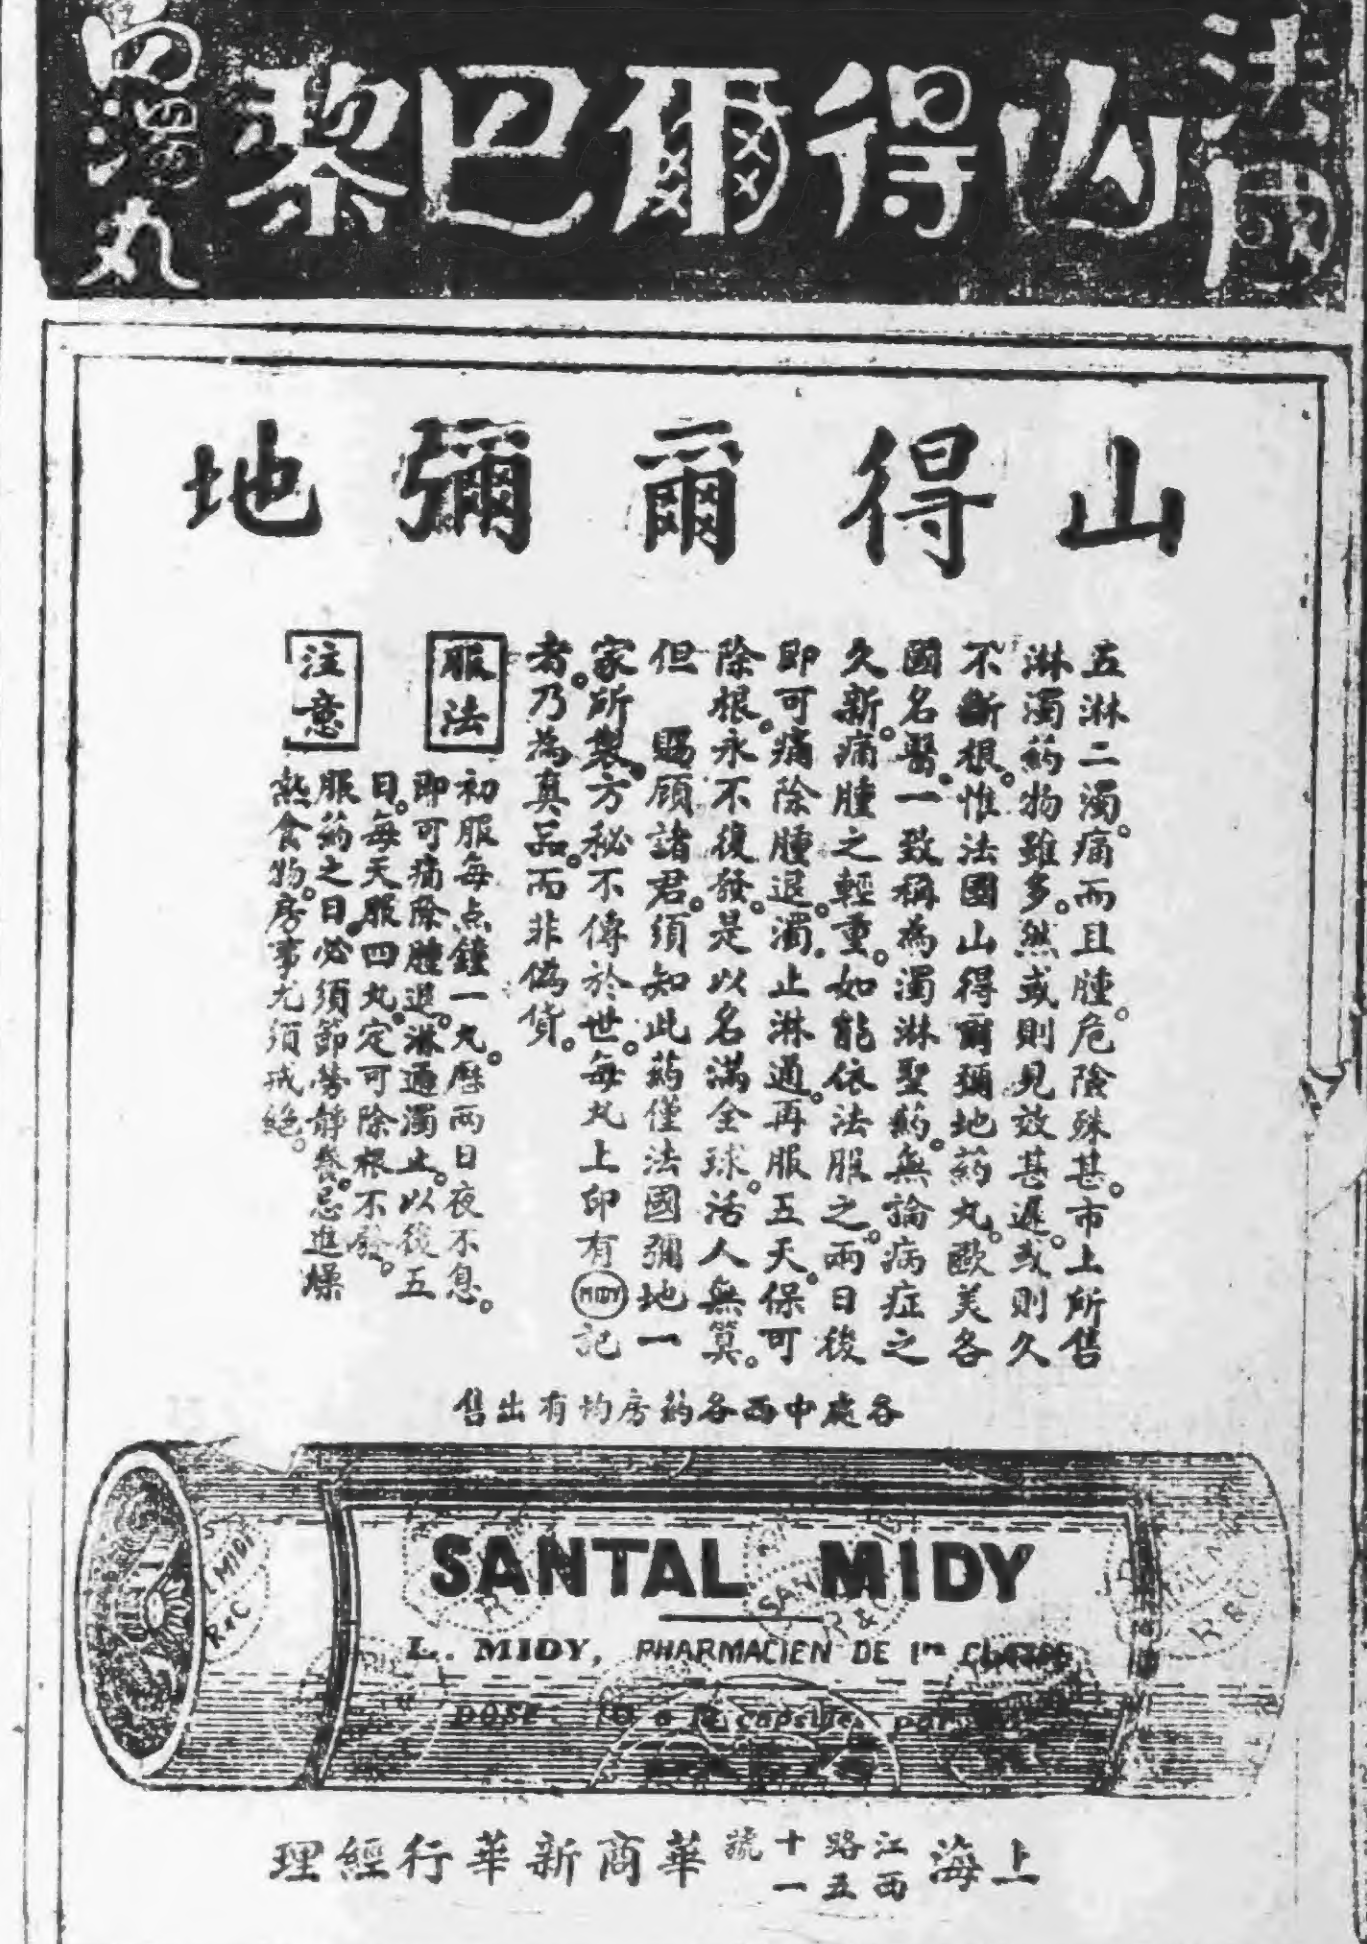 法國
山得爾巴黎
白濁丸
山得爾彌地
五淋二濁。痛而且腫。危險殊甚。市上所售
淋濁葯物雖多。然或則見效甚遲。或則久
不斷根。惟法國山得爾彌地葯丸。歐美各
國名醫。一致稱為濁淋聖葯。無論病症之
久新。痛腫之輕重。如能依法服之。兩日後
即可痛除腫退。濁止淋通。再服五天。保可
除根。永不復發。是以名滿全球。活人無算。
但 賜顧諸君。須知此葯僅法國彌地一
家所製。方秘不傳於世。每丸上印有MIDY記
者。乃為真品。而非偽貨。
服法
初服每点鐘一丸。歷兩日夜不息。
即可痛除腫退。淋通濁止。以後五
日。每天服四丸。定可除根不發。
注意
服葯之日。必須節勞靜養。忌進燥
熱食物。房事尤須戒絕。
各處中西各葯房均有出售
SANTAL MIDY
L. MIDY, PHARMACIEN DE 1re Classe
DOSE: 10 à 12 capsules par
L MIDY
R & C
SANTAL
R & C
R & C
上海江西路五十一號華商新華行經理